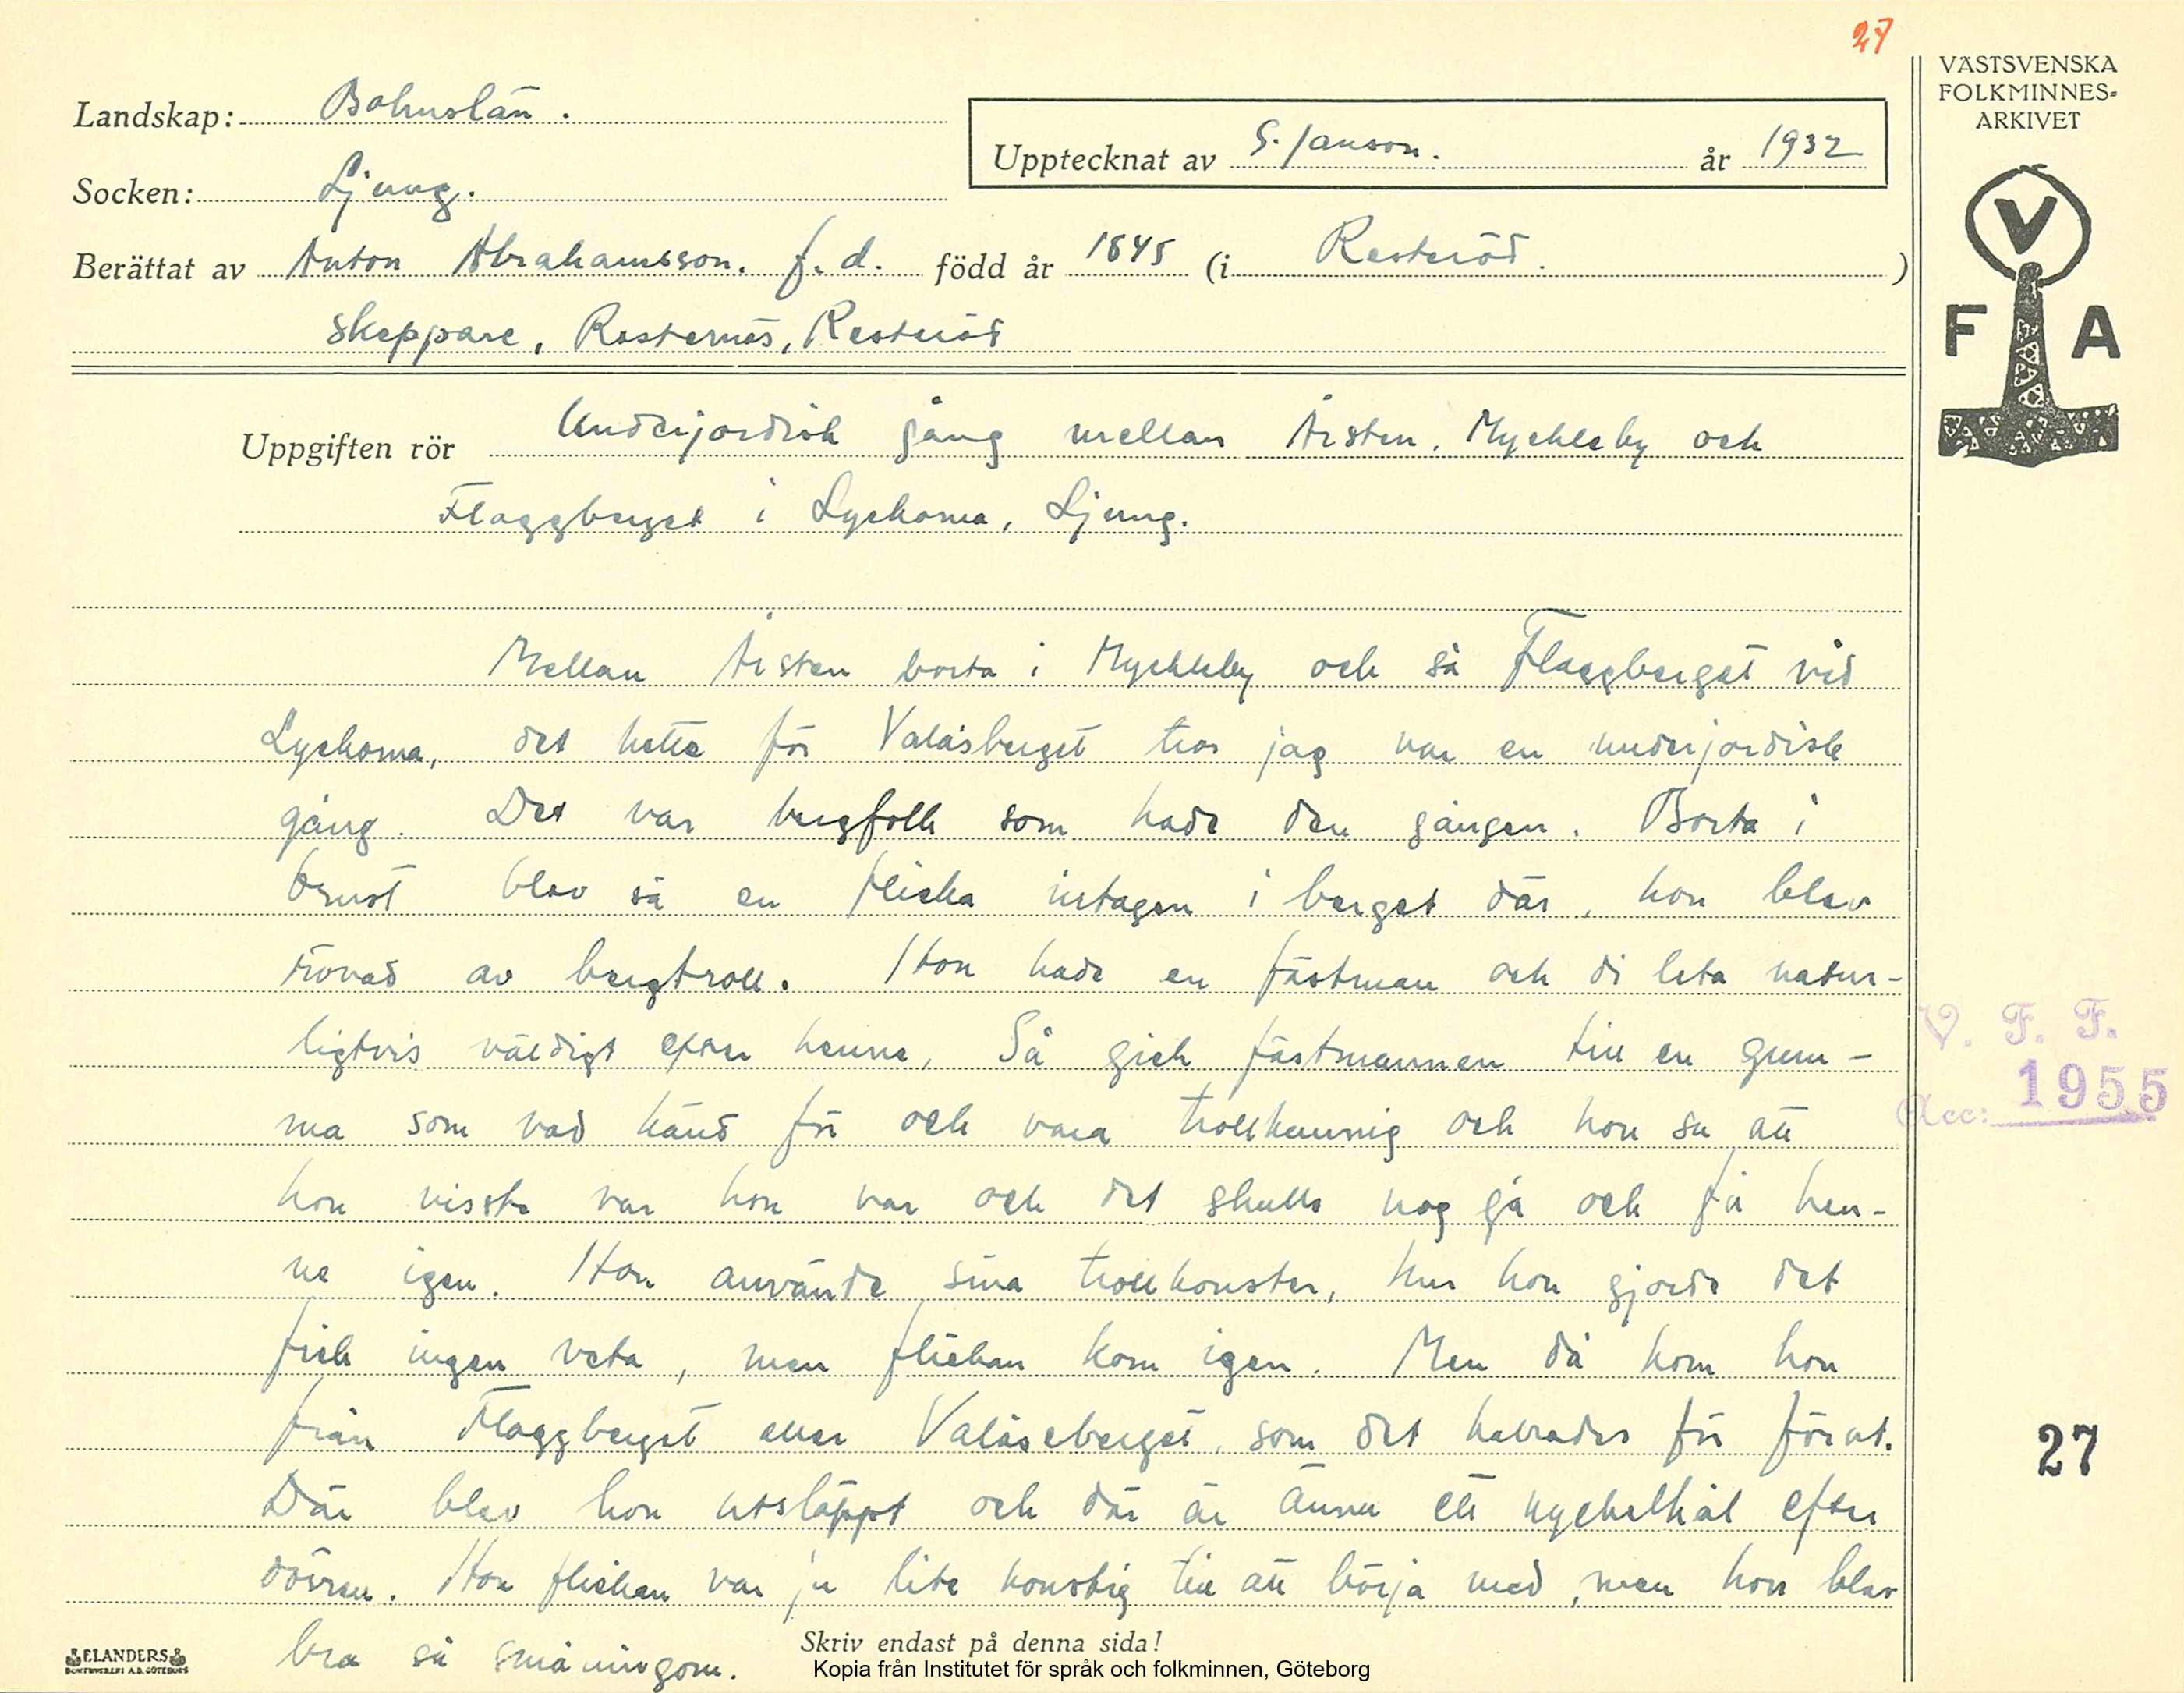 27
VÄSTSVENSKA
FOLKMINNES-
ARKIVET
Landskap: Bohuslän.
Upptecknat av S. Janson. år 1932
Socken: Ljung.
Berättat av Anton Abrahamsson. f. d. född år 1845 (i Resteröd. )
skeppare, Resternäs, Resteröd
V
F A
Uppgiften rör Underjordisk gång mellan Årsten, Myckleby och
Flaggberget i Lyckorna, Ljung.
Mellan Årsten borta i Myckleby och så Flaggberget vid
Lyckorna, det hette för Valåsberget tror jag var en underjordisk
gång. Det var bergfolk som hade den gången. Borta i
Orust blev så en flicka intagen i berget där, hon blev
rövad av bergtroll. Hon hade en fästman och di leta natur-
ligtvis väldigt efter henne, Så gick fästmannen till en gum-
ma som vad känd för och vara trollkunnig och hon sa att
hon visste var hon var och det skulle nog gå och få hen-
ne igen. Hon använde sina trollkonster, hur hon gjorde det
fick ingen veta, men flickan kom igen. Men då kom hon
från Flaggberget eller Valåseberget, som det kallades för förut.
Där blev hon utsläppt och där är ännu ett nyckelhål efter
dörren. Hon flickan var ju lite konstig till att börja med, men hon blev
bra så småningom.
V. F. F.
Acc: 1955
27
Skriv endast på denna sida!
ELANDERS
Kopia från Institutet för språk och folkminnen, Göteborg